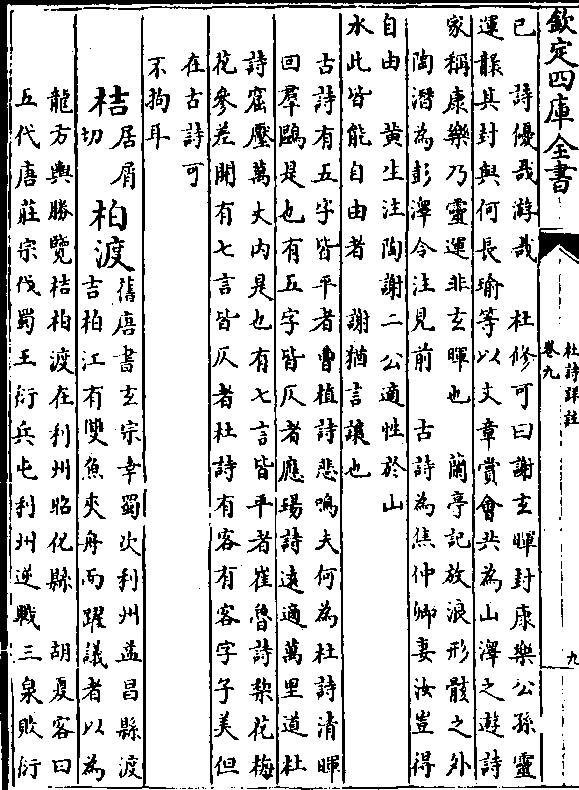 欽定四庫全書
杜詩詳註
卷九
九
已　詩優哉游哉　杜修可曰謝玄暉封康樂公孫靈
運襲其封與何長瑜等以文章賞會共為山澤之遊詩
家稱康樂乃靈運非玄暉也　蘭亭記放浪形骸之外
陶潛為彭澤令注見前　古詩為焦仲卿妻汝豈得
自由　黄生注陶謝二公適性於山
水此皆能自由者　謝猶言讓也
古詩有五字皆平者曹植詩悲鳴夫何為杜詩清暉
回羣鷗是也有五字皆仄者應瑒詩遠適萬里道杜
詩窟壓萬丈内是也有七言皆平者崔魯詩梨花梅
花參差開有七言皆仄者杜詩有客有客字子美但
在古詩可
不拘耳
桔居屑
切柏渡舊唐書玄宗幸蜀次利州益昌縣渡
吉柏江有雙魚夾舟而躍議者以為
龍方輿勝覽桔柏渡在利州昭化縣　胡夏客曰
五代唐莊宗伐蜀王衍兵屯利州逆戰三泉敗衍